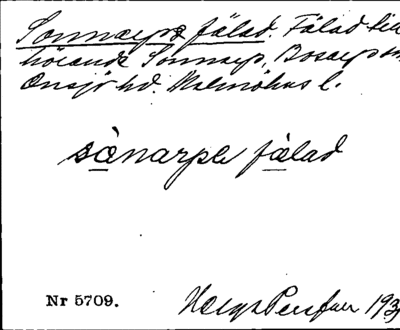 Sonnarps fälad. Fälad till
hörande Sonnarp, Bosarps sn,
Onsjö hd. Malmöhus l.
sònarps fälad
Nr 5709.
Helge Persson 193